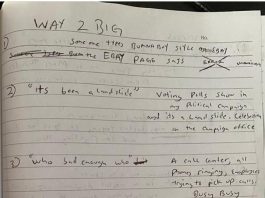 WAY 2 BIG
1) Someone tries BURNABOY STYLE
from the EBAY PAGE says ERROR
2) "Its been a landslide" Voting Polls show in
my Political Campaign
and its a landslide. Celebrating
in the Campaign office
3) "Who bad enough who A call center, all
phones ringing, employees
trying to pick up calls.
Busy Busy